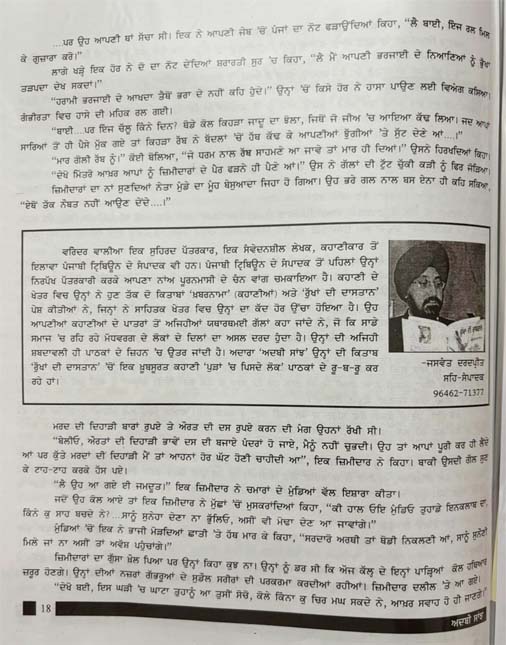 ...ਪਰ ਉਹ ਆਪਣੀ ਥਾਂ ਸੱਚਾ ਸੀ। ਇਕ ਨੇ ਆਪਣੀ ਜੇਬ 'ਚੋਂ ਪੰਜਾਂ ਦਾ ਨੋਟ ਫੜਾਉਂਦਿਆਂ ਕਿਹਾ, "ਲੈ ਬਾਈ, ਇਜ ਰਲ ਮਿਲ
ਕੇ ਗੁਜ਼ਾਰਾ ਕਰੋ।"
ਲਾਗੇ ਖੜ੍ਹੇ ਇਕ ਹੋਰ ਨੇ ਦੋ ਦਾ ਨੋਟ ਦੇਂਦਿਆਂ ਸ਼ਰਾਰਤੀ ਸੁਰ 'ਚ ਕਿਹਾ, "ਲੈ ਮੈਂ ਆਪਣੀ ਭਰਜਾਈ ਦੇ ਨਿਆਣਿਆਂ ਨੂੰ ਭੁੱਖਾ
ਤੜਪਦਾ ਦੇਖ ਸਕਦਾਂ।"
"ਹਰਾਮੀ ਭਰਜਾਈ ਦੇ ਆਖਦਾ ਤੈਥੋਂ ਭਰਾ ਦੇ ਨਹੀਂ ਕਹਿ ਹੁੰਦੇ।" ਉਨ੍ਹਾਂ 'ਚੋਂ ਕਿਸੇ ਹੋਰ ਨੇ ਹਾਸਾ ਪਾਉਣ ਲਈ ਵਿਅੰਗ ਕਸਿਆ।
ਗੰਭੀਰਤਾ ਵਿਚ ਹਾਸੇ ਦੀ ਮਹਿਕ ਰਲ ਗਈ।
"ਬਾਈ...ਪਰ ਇਜ ਚੱਲੂ ਕਿੰਨੇ ਦਿਨ? ਥੋਡੇ ਕੋਲ ਕਿਹੜਾ ਜਾਦੂ ਦਾ ਝੋਲਾ, ਜਿਥੋਂ ਜੋ ਜੀਅ 'ਚ ਆਇਆ ਕੱਢ ਲਿਆ। ਜਦ ਆਪਾਂ
ਸਾਰਿਆਂ ਤੋਂ ਹੀ ਪੈਸੇ ਮੁੱਕ ਗਏ ਤਾਂ ਕਿਹੜਾ ਰੱਬ ਨੇ ਬੱਦਲਾਂ 'ਚੋਂ ਹੱਥ ਕੱਢ ਕੇ ਆਪਣੀਆਂ ਝੁੱਗੀਆਂ 'ਤੇ ਸੁੱਟ ਦੇਣੇ ਆਂ....।"
"ਮਾਰ ਗੋਲੀ ਰੱਬ ਨੂੰ।" ਕੋਈ ਬੋਲਿਆ, "ਜੇ ਧਰਮ ਨਾਲ ਰੱਬ ਸਾਹਮਣੇ ਆ ਜਾਵੇ ਤਾਂ ਮਾਰ ਹੀ ਦਿਆਂ।" ਉਸਨੇ ਹਿਰਖਦਿਆਂ ਕਿਹਾ।
"ਦੇਖੋ ਮਿੱਤਰੋ ਆਖ਼ਰ ਆਪਾਂ ਨੂੰ ਜ਼ਿਮੀਦਾਰਾਂ ਦੇ ਪੈਰ ਫੜਨੇ ਹੀ ਪੈਣੇ ਆਂ।" ਉਸ ਨੇ ਗੱਲਾਂ ਦੀ ਟੁੱਟ ਚੁੱਕੀ ਕੜੀ ਨੂੰ ਫਿਰ ਜੋੜਿਆ।
ਜ਼ਿਮੀਦਾਰਾਂ ਦਾ ਨਾਂ ਸੁਣਦਿਆਂ ਨੇਤਾ ਮੁੰਡੇ ਦਾ ਮੂੰਹ ਬੇਸੁਆਦਾ ਜਿਹਾ ਹੋ ਗਿਆ। ਉਹ ਭਰੇ ਗਲ ਨਾਲ ਬਸ ਏਨਾ ਹੀ ਕਹਿ ਸਕਿਆ,
"ਏਥੋਂ ਤੱਕ ਨੌਬਤ ਨਹੀਂ ਆਉਣ ਦੇਂਦੇ....।"
ਵਰਿੰਦਰ ਵਾਲੀਆ ਇਕ ਸੁਹਿਰਦ ਪੱਤਰਕਾਰ, ਇਕ ਸੰਵੇਦਨਸ਼ੀਲ ਲੇਖਕ, ਕਹਾਣੀਕਾਰ ਤੋਂ
ਇਲਾਵਾ ਪੰਜਾਬੀ ਟ੍ਰਿਬਿਊਨ ਦੇ ਸੰਪਾਦਕ ਵੀ ਹਨ। ਪੰਜਾਬੀ ਟ੍ਰਿਬਿਊਨ ਦੇ ਸੰਪਾਦਕ ਤੋਂ ਪਹਿਲਾਂ ਉਨ੍ਹਾਂ
ਨਿਰਪੱਖ ਪੱਤਰਕਾਰੀ ਕਰਕੇ ਆਪਣਾ ਨਾਂਅ ਪੂਰਨਮਾਸੀ ਦੇ ਚੰਨ ਵਾਂਗ ਚਮਕਾਇਆ ਹੈ। ਕਹਾਣੀ ਦੇ
ਖੇਤਰ ਵਿਚ ਉਨ੍ਹਾਂ ਨੇ ਹੁਣ ਤੱਕ ਦੋ ਕਿਤਾਬਾਂ 'ਖ਼ਬਰਨਾਮਾ' (ਕਹਾਣੀਆਂ) ਅਤੇ 'ਰੁੱਖਾਂ ਦੀ ਦਾਸਤਾਨ'
ਪੇਸ਼ ਕੀਤੀਆਂ ਨੇ, ਜਿਨ੍ਹਾਂ ਨੇ ਸਾਹਿਤਕ ਖੇਤਰ ਵਿਚ ਉਨ੍ਹਾਂ ਦਾ ਕੱਦ ਹੋਰ ਉੱਚਾ ਹੋਇਆ ਹੈ। ਉਹ
ਆਪਣੀਆਂ ਕਹਾਣੀਆਂ ਦੇ ਪਾਤਰਾਂ ਤੋਂ ਅਜਿਹੀਆਂ ਯਥਾਰਥਮਈ ਗੱਲਾਂ ਕਹਾ ਜਾਂਦੇ ਨੇ, ਜੋ ਕਿ ਸਾਡੇ
ਸਮਾਜ 'ਚ ਰਹਿ ਰਹੇ ਮੱਧਵਰਗ ਦੇ ਲੋਕਾਂ ਦੇ ਦਿਲਾਂ ਦਾ ਅਸਲ ਦਰਦ ਹੁੰਦਾ ਹੈ। ਉਨ੍ਹਾਂ ਦੀ ਅਜਿਹੀ
ਸ਼ਬਦਾਵਲੀ ਹੀ ਪਾਠਕਾਂ ਦੇ ਜ਼ਿਹਨ 'ਚ ਉਤਰ ਜਾਂਦੀ ਹੈ। ਅਦਾਰਾ 'ਅਦਬੀ ਸਾਂਝ' ਉਨ੍ਹਾਂ ਦੀ ਕਿਤਾਬ
'ਰੁੱਖਾਂ ਦੀ ਦਾਸਤਾਨ' 'ਚੋਂ ਇਕ ਖ਼ੂਬਸੂਰਤ ਕਹਾਣੀ 'ਪੁੜਾਂ 'ਚ ਪਿਸਦੇ ਲੋਕ' ਪਾਠਕਾਂ ਦੇ ਰੂ-ਬ-ਰੂ ਕਰ
ਰਹੇ ਹਾਂ।
-ਜਸਵੰਤ ਦਰਦਪ੍ਰੀਤ
ਸਹਿ-ਸੰਪਾਦਕ
96462-71377
ਮਰਦ ਦੀ ਦਿਹਾੜੀ ਬਾਰਾਂ ਰੁਪਏ ਤੇ ਔਰਤ ਦੀ ਦਸ ਰੁਪਏ ਕਰਨ ਦੀ ਮੰਗ ਉਹਨਾਂ ਰੱਖੀ ਸੀ।
"ਬੇਲੀਓ, ਔਰਤਾਂ ਦੀ ਦਿਹਾੜੀ ਭਾਵੇਂ ਦਸ ਦੀ ਬਜਾਏ ਪੰਦਰਾਂ ਹੋ ਜਾਏ, ਮੈਨੂੰ ਨਹੀਂ ਚੁਭਦੀ। ਉਹ ਤਾਂ ਆਪਾਂ ਪੂਰੀ ਕਰ ਹੀ ਲੈਂਦੇ
ਆਂ ਪਰ ਕੁੱਤੇ ਮਰਦਾਂ ਦੀ ਦਿਹਾੜੀ ਮੈਂ ਤਾਂ ਆਹਨਾਂ ਹੋਰ ਘੱਟ ਹੋਣੀ ਚਾਹੀਦੀ ਆ", ਇਕ ਜ਼ਿਮੀਦਾਰ ਨੇ ਕਿਹਾ। ਬਾਕੀ ਉਸਦੀ ਗੱਲ ਸੁਣ
ਕੇ ਟਾਹ-ਟਾਹ ਕਰਕੇ ਹੱਸ ਪਏ।
"ਲੈ ਉਹ ਆ ਗਏ ਈ ਜਮਦੂਤ।" ਇਕ ਜ਼ਿਮੀਦਾਰ ਨੇ ਚਮਾਰਾਂ ਦੇ ਮੁੰਡਿਆਂ ਵੱਲ ਇਸ਼ਾਰਾ ਕੀਤਾ।
ਜਦੋਂ ਉਹ ਕੋਲ ਆਏ ਤਾਂ ਇਕ ਜ਼ਿਮੀਦਾਰ ਨੇ ਮੁੱਛਾਂ 'ਚੋਂ ਮੁਸਕਰਾਂਦਿਆਂ ਕਿਹਾ, "ਕੀ ਹਾਲ ਓਇ ਮੁੰਡਿਓ ਤੁਹਾਡੇ ਇਨਕਲਾਬ ਦਾ,
ਕਿੰਨੇ ਕੁ ਸਾਹ ਬਚਦੇ ਨੇ?...ਸਾਨੂੰ ਸੁਨੇਹਾ ਦੇਣਾ ਨਾ ਭੁੱਲਿਓ, ਅਸੀਂ ਵੀ ਮੋਢਾ ਦੇਣ ਆ ਜਾਵਾਂਗੇ।"
ਮੁੰਡਿਆਂ 'ਚੋਂ ਇਕ ਨੇ ਭਾਜੀ ਮੋੜਦਿਆਂ ਛਾਤੀ 'ਤੇ ਹੱਥ ਮਾਰ ਕੇ ਕਿਹਾ, "ਸਰਦਾਰੋ ਅਰਥੀ ਤਾਂ ਥੋਡੀ ਨਿਕਲਣੀ ਆਂ, ਸਾਨੂੰ ਸੁਨੇਹਾ
ਮਿਲੇ ਜਾਂ ਨਾ ਅਸੀਂ ਤਾਂ ਅਵੱਸ਼ ਪਹੁੰਚਾਂਗੇ।"
ਜ਼ਿਮੀਦਾਰਾਂ ਦਾ ਗੁੱਸਾ ਖ਼ੌਲ ਪਿਆ ਪਰ ਉਨ੍ਹਾਂ ਕਿਹਾ ਕੁਝ ਨਾ। ਉਨ੍ਹਾਂ ਨੂੰ ਡਰ ਸੀ ਕਿ ਅੱਜ ਕੱਲ੍ਹ ਦੇ ਇਨ੍ਹਾਂ ਪਾੜ੍ਹਿਆਂ ਕੋਲ ਹਥਿਆਰ
ਜ਼ਰੂਰ ਹੋਣਗੇ। ਉਨ੍ਹਾਂ ਦੀਆਂ ਨਜ਼ਰਾਂ ਗੱਭਰੂਆਂ ਦੇ ਸੁਡੌਲ ਸਰੀਰਾਂ ਦੀ ਪਰਕਰਮਾ ਕਰਦੀਆਂ ਰਹੀਆਂ। ਜ਼ਿਮੀਦਾਰ ਦਲੀਲ 'ਤੇ ਆ ਗਏ।
"ਦੇਖੋ ਬਈ, ਇਸ ਘੜੀ 'ਚ ਘਾਟਾ ਤੁਹਾਨੂੰ ਆ ਤੁਸੀਂ ਸੋਚੋ, ਕੋਲੇ ਕਿੰਨਾ ਕੁ ਚਿਰ ਮਘ ਸਕਦੇ ਨੇ, ਆਖ਼ਰ ਸਵਾਹ ਹੋ ਹੀ ਜਾਣਗੇ।"
18
ਅਦਬੀ ਸਾਂਝ